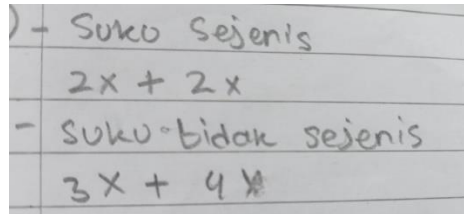 ) - Suko Sejenis
2x + 2x
- Suku tidak sejenis
3x + 4